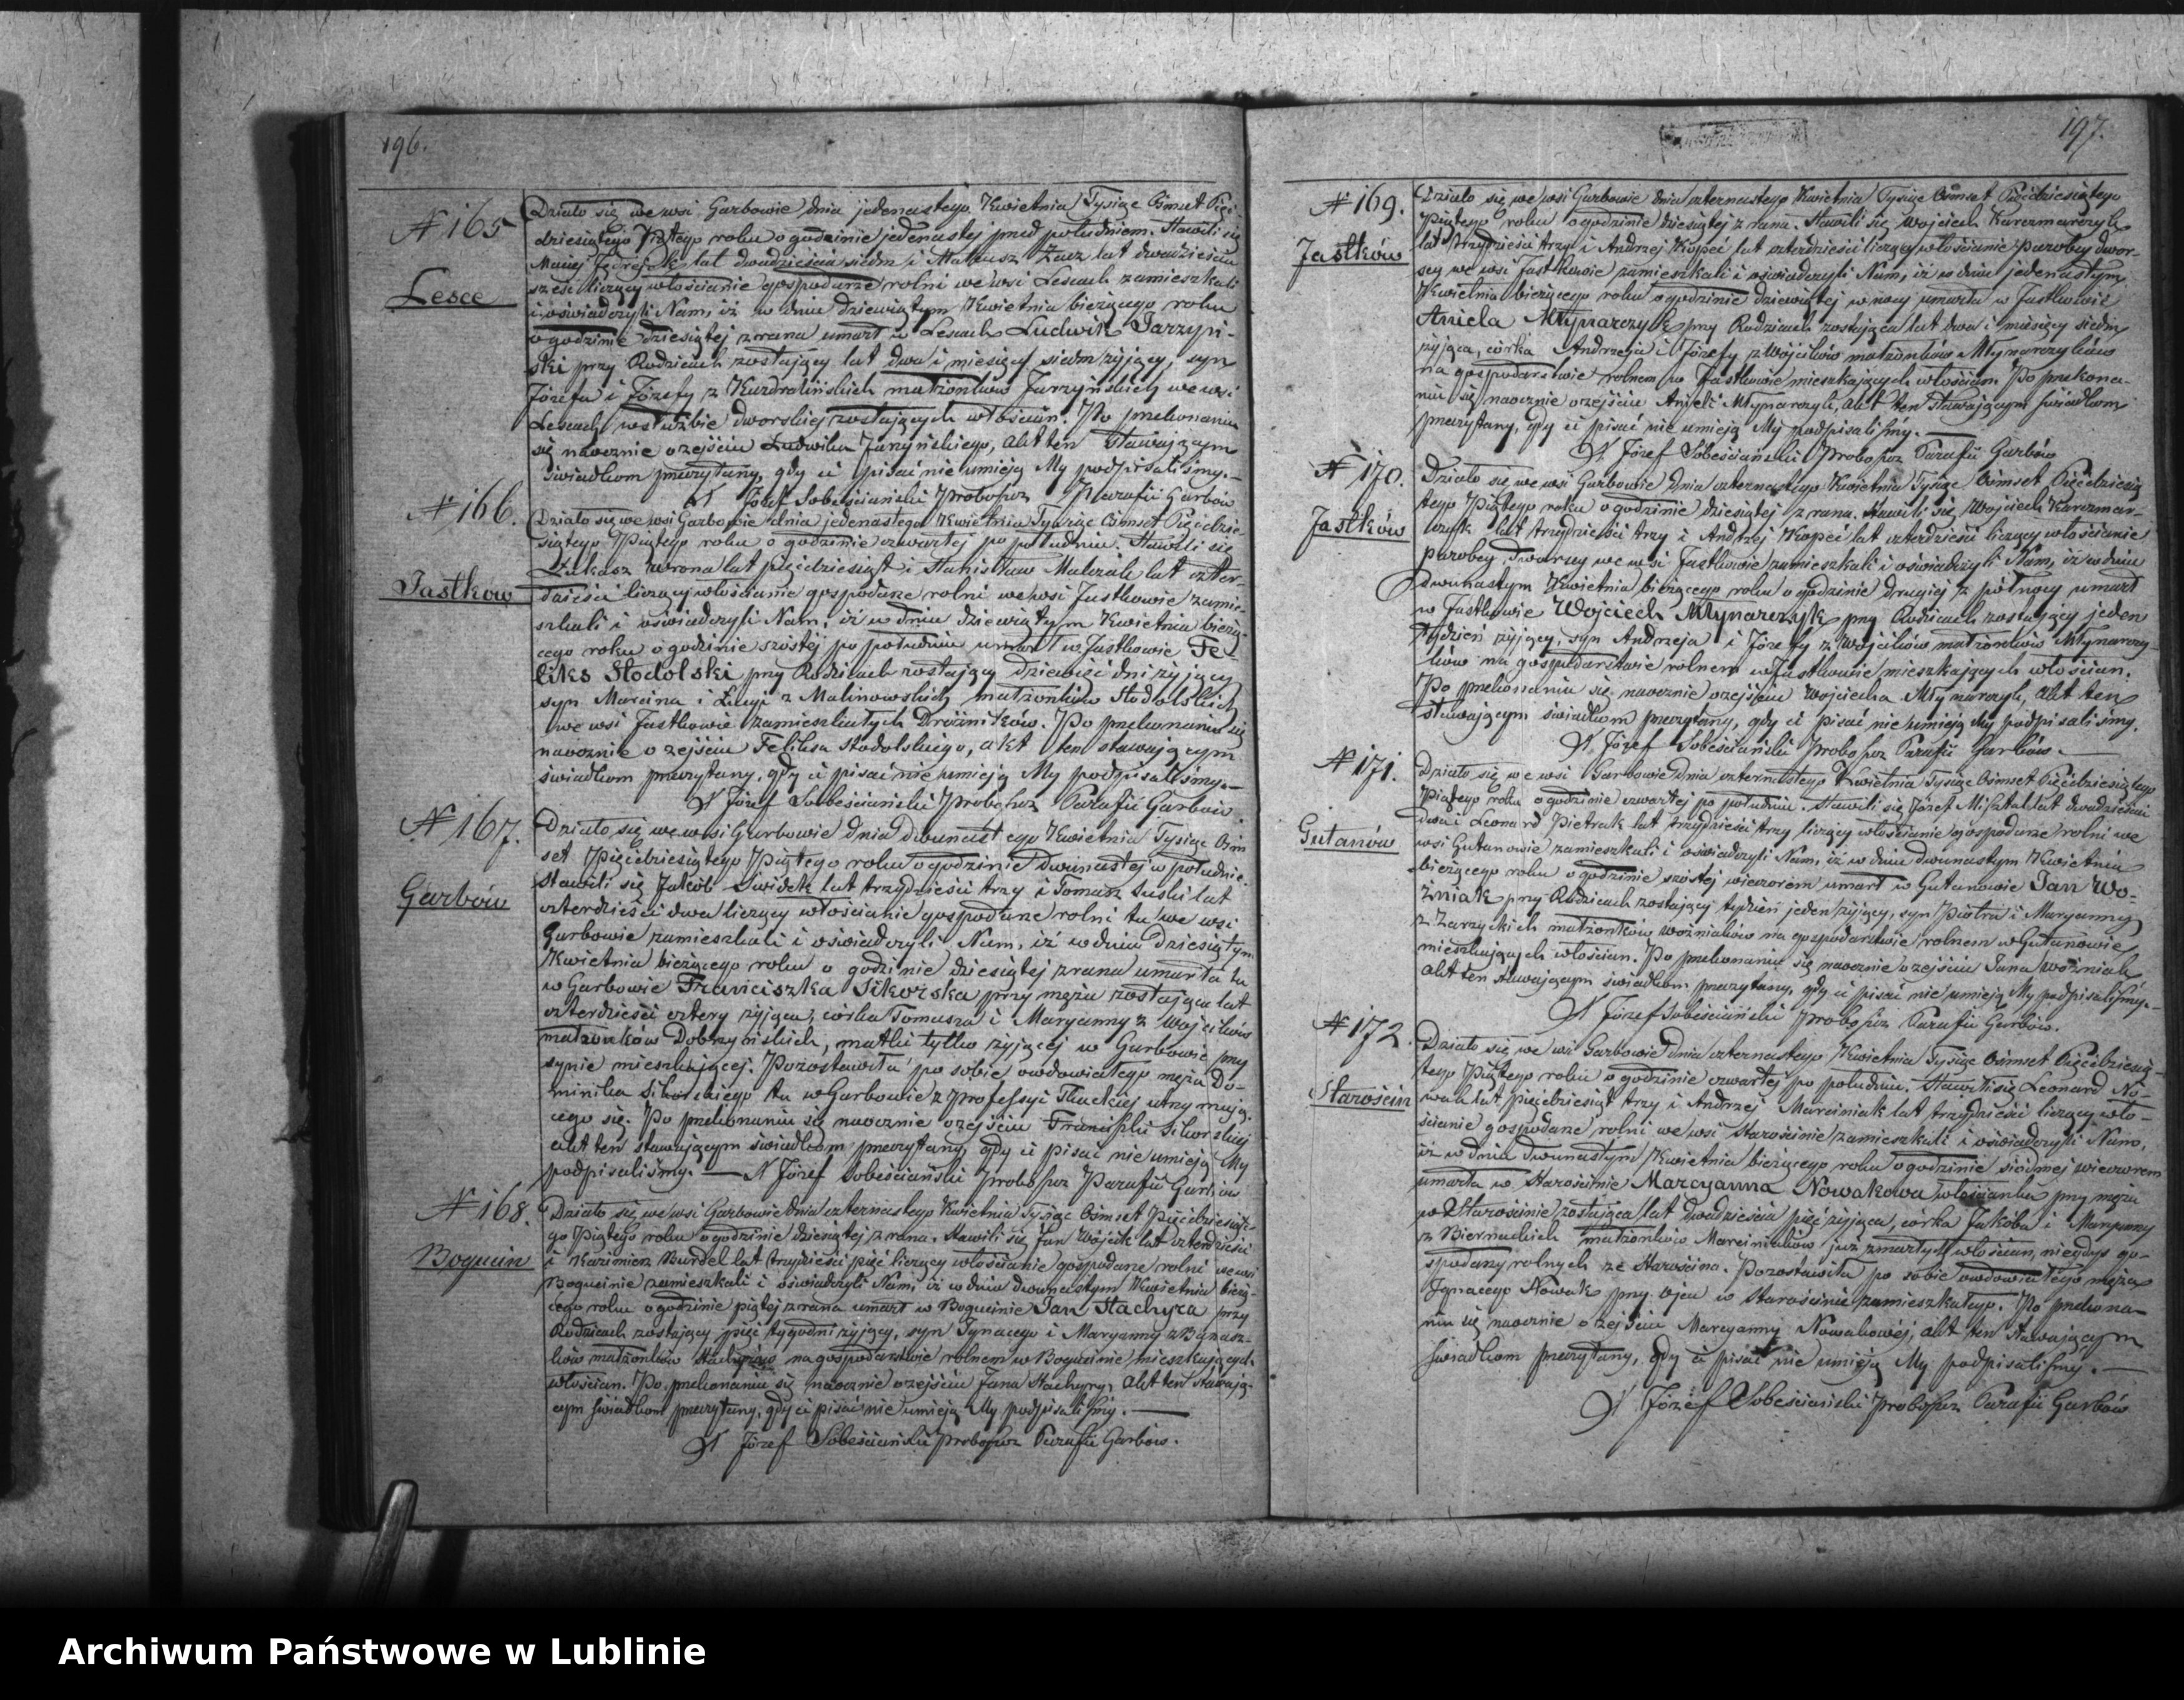 196.
N 165
Lesce
Działo się we wsi Garbowie dnia jedenastego Kwietnia Tysiąc Ośmset Pięć-
dziesiątego Piątego roku o godzinie jedenastej przed południem. Stawili się
Maciej lat dwadzieścia siedm i Mateusz lat dwadzieścia
sześć liczący włościanie gospodarze rolni we wsi Lescach zamieszkali
i oświadczyli Nam, iż w dniu dziewiątym Kwietnia bieżącego roku
o godzinie dziesiątej z rana umarł w Lescach Ludwik Jarzyń-
ski przy Rodzicach zostający lat dwa i miesięcy siedm żyjący, syn
Józefa i Józefy z małżonków Jarzyńskich we wsi
Lescach w służbie dworskiej zostających włościan. Po przekonaniu
się naocznie o zejściu Ludwika Jarzyńskiego, akt ten stawającym
świadkom przeczytany, gdy ci pisać nie umieją My podpisaliśmy.—
X Józef Sobeściański Proboszcz Parafii Garbów
N 166.
Jastków
Działo się we wsi Garbowie dnia jedenastego Kwietnia Tysiąc Ośmset Pięćdzie-
siątego Piątego roku o godzinie czwartej po południu. Stawili się
Łukasz Wrona lat pięćdziesiąt i Stanisław Malczak lat czter-
dzieści liczący włościanie gospodarze rolni we wsi Jastkowie zamie-
szkali i oświadczyli Nam, iż w dniu dziewiątym Kwietnia bieżą-
cego roku o godzinie szóstej po południu umarł w Jastkowie Fe-
liks Stodolski przy Rodzicach zostający dziewięć dni żyjący
syn Marcina i Łucyi z Malinowskich małżonków Stodolskich
we wsi Jastkowie zamieszkałych Drożników. Po przekonaniu się
naocznie o zejściu Feliksa Stodolskiego, akt ten stawającym
świadkom przeczytany, gdy ci pisać nie umieją My podpisaliśmy.—
X Józef Sobeściański Proboszcz Parafii Garbów.
N 167.
Garbów
Działo się we wsi Garbowie dnia Dwunastego Kwietnia Tysiąc Ośm
set Pięćdziesiątego Piątego roku o godzinie dwunastej w południe.
Stawili się Jakób Świdek lat trzydzieści trzy i Tomasz Suski lat
czterdzieści dwa liczący włościanie gospodarze rolni tu we wsi
Garbowie zamieszkali i oświadczyli Nam, iż w dniu dziesiątym
Kwietnia bieżącego roku o godzinie dziesiątej z rana umarła tu
w Garbowie Franciszka Sikorska przy mężu zostająca lat
czterdzieści cztery żyjąca, córka Tomasza i Maryanny z Wójcików
małżonków Dobrzyńskich, matki tylko żyjącej w Garbowie przy
synie mieszkającej. Pozostawiła po sobie owdowiałego męża Do-
minika Sikorskiego tu w Garbowie z professyi Tkackiej utrzymują-
cego się. Po przekonaniu się naocznie o zejściu Franciszki Sikorskiej
akt ten stawającym świadkom przeczytany, gdy ci pisać nie umieją My
podpisaliśmy.— X Józef Sobeściański Proboszcz Parafii Garbów
N 168.
Bogucin
Działo się we wsi Garbowie dnia czternastego Kwietnia Tysiąc Ośmset Pięćdziesiąte-
go Piątego roku o godzinie dziesiątej z rana. Stawili się Jan Wójcik lat czterdzieści
i Kazimierz Burdel lat trzydzieści pięć liczący włościanie gospodarze rolni we wsi
Bogucinie zamieszkali i oświadczyli Nam, iż w dniu dwunastym Kwietnia bieżą-
cego roku o godzinie piątej z rana umarł w Bogucinie Jan Stachyra przy
Rodzicach zostający pięć tygodni żyjący, syn Ignacego i Maryanny z Banasz-
ków małżonków Stachyrów na gospodarstwie rolnem w Bogucinie mieszkających
włościan. Po przekonaniu się naocznie o zejściu Jana Stachyry, akt ten stawają-
cym świadkom przeczytany, gdy ci pisać nie umieją My podpisaliśmy.—
X Józef Sobeściański Proboszcz Parafii Garbów.
197.
N 169.
Jastków
Działo się we wsi Garbowie dnia czternastego Kwietnia Tysiąc Ośmset Pięćdziesiątego
Piątego roku o godzinie dziesiątej z rana. Stawili się Wojciech Karczmarczyk
lat trzydzieści trzy i Andrzej Kopeć lat czterdzieści liczący włościanie parobcy dwor-
scy we wsi Jastkowie zamieszkali i oświadczyli Nam, iż w dniu jedenastym
Kwietnia bieżącego roku o godzinie dziewiątej w nocy umarła w Jastkowie
Aniela Młynarczyk przy Rodzicach zostająca lat dwa i miesięcy siedm
żyjąca, córka Andrzeja i Józefy z Wójcików małżonków Młynarczyków
na gospodarstwie rolnem w Jastkowie mieszkających włościan. Po przekona-
niu się naocznie o zejściu Anieli Młynarczyk, akt ten stawającym świadkom
przeczytany, gdy ci pisać nie umieją My podpisaliśmy.—
X Józef Sobeściański Proboszcz Parafii Garbów
N 170.
Jastków
Działo się we wsi Garbowie dnia czternastego Kwietnia Tysiąc Ośmset Pięćdziesią-
tego Piątego roku o godzinie dziesiątej z rana. Stawili się Wojciech Karczmar-
czyk lat trzydzieści trzy i Andrzej Kopeć lat czterdzieści liczący włościanie
parobcy dworscy we wsi Jastkowie zamieszkali i oświadczyli Nam, iż w dniu
dwunastym Kwietnia bieżącego roku o godzinie drugiej z północy umarł
w Jastkowie Wojciech Młynarczyk przy Rodzicach zostający jeden
tydzień żyjący, syn Andrzeja i Józefy z Wójcików małżonków Młynarczy-
ków na gospodarstwie rolnem w Jastkowie mieszkających włościan.
Po przekonaniu się naocznie o zejściu Wojciecha Młynarczyk, akt ten
stawającym świadkom przeczytany, gdy ci pisać nie umieją My podpisaliśmy.
X Józef Sobeściański Proboszcz Parafii Garbów.—
N 171.
Gutanów
Działo się we wsi Garbowie dnia czternastego Kwietnia Tysiąc Ośmset Pięćdziesiątego
Piątego roku o godzinie czwartej po południu. Stawili się Józef Misztal lat dwadzieścia
dwa i Leonard Pietrak lat trzydzieści trzy liczący włościanie gospodarze rolni we
wsi Gutanowie zamieszkali i oświadczyli Nam, iż w dniu dwunastym Kwietnia
bieżącego roku o godzinie szóstej wieczorem umarł w Gutanowie Jan Wo-
źniak przy Rodzicach zostający tydzień jeden żyjący, syn Piotra i Maryanny
z Zarzyckich małżonków Woźniaków na gospodarstwie rolnem w Gutanowie
mieszkających włościan. Po przekonaniu się naocznie o zejściu Jana Woźniak
akt ten stawającym świadkom przeczytany, gdy ci pisać nie umieją My podpisaliśmy.—
X Józef Sobeściański Proboszcz Parafii Garbów.
N 172.
Starościn
Działo się we wsi Garbowie dnia czternastego Kwietnia Tysiąc Ośmset Pięćdziesią-
tego Piątego roku o godzinie czwartej po południu. Stawili się Leonard No-
wak lat pięćdziesiąt trzy i Andrzej Marciniak lat trzydzieści liczący wło-
ścianie gospodarze rolni we wsi Starościnie zamieszkali i oświadczyli Nam,
iż w dniu dwunastym Kwietnia bieżącego roku o godzinie siódmej wieczorem
umarła w Starościnie Marcyanna Nowakowa włościanka przy mężu
w Starościnie zostająca lat dwadzieścia pięć żyjąca, córka Jakóba i Maryanny
z Biernackich małżonków Marciniaków już zmarłych włościan, niegdyś go-
spodarzy rolnych ze Starościna. Pozostawiła po sobie owdowiałego męża
Ignacego Nowak przy ojcu w Starościnie zamieszkałego. Po przekona-
niu się naocznie o zejściu Marcyanny Nowakowéj, akt ten stawającym
świadkom przeczytany, gdy ci pisać nie umieją My podpisaliśmy.—
X Józef Sobeściański Proboszcz Parafii Garbów
Archiwum Państwowe w Lublinie